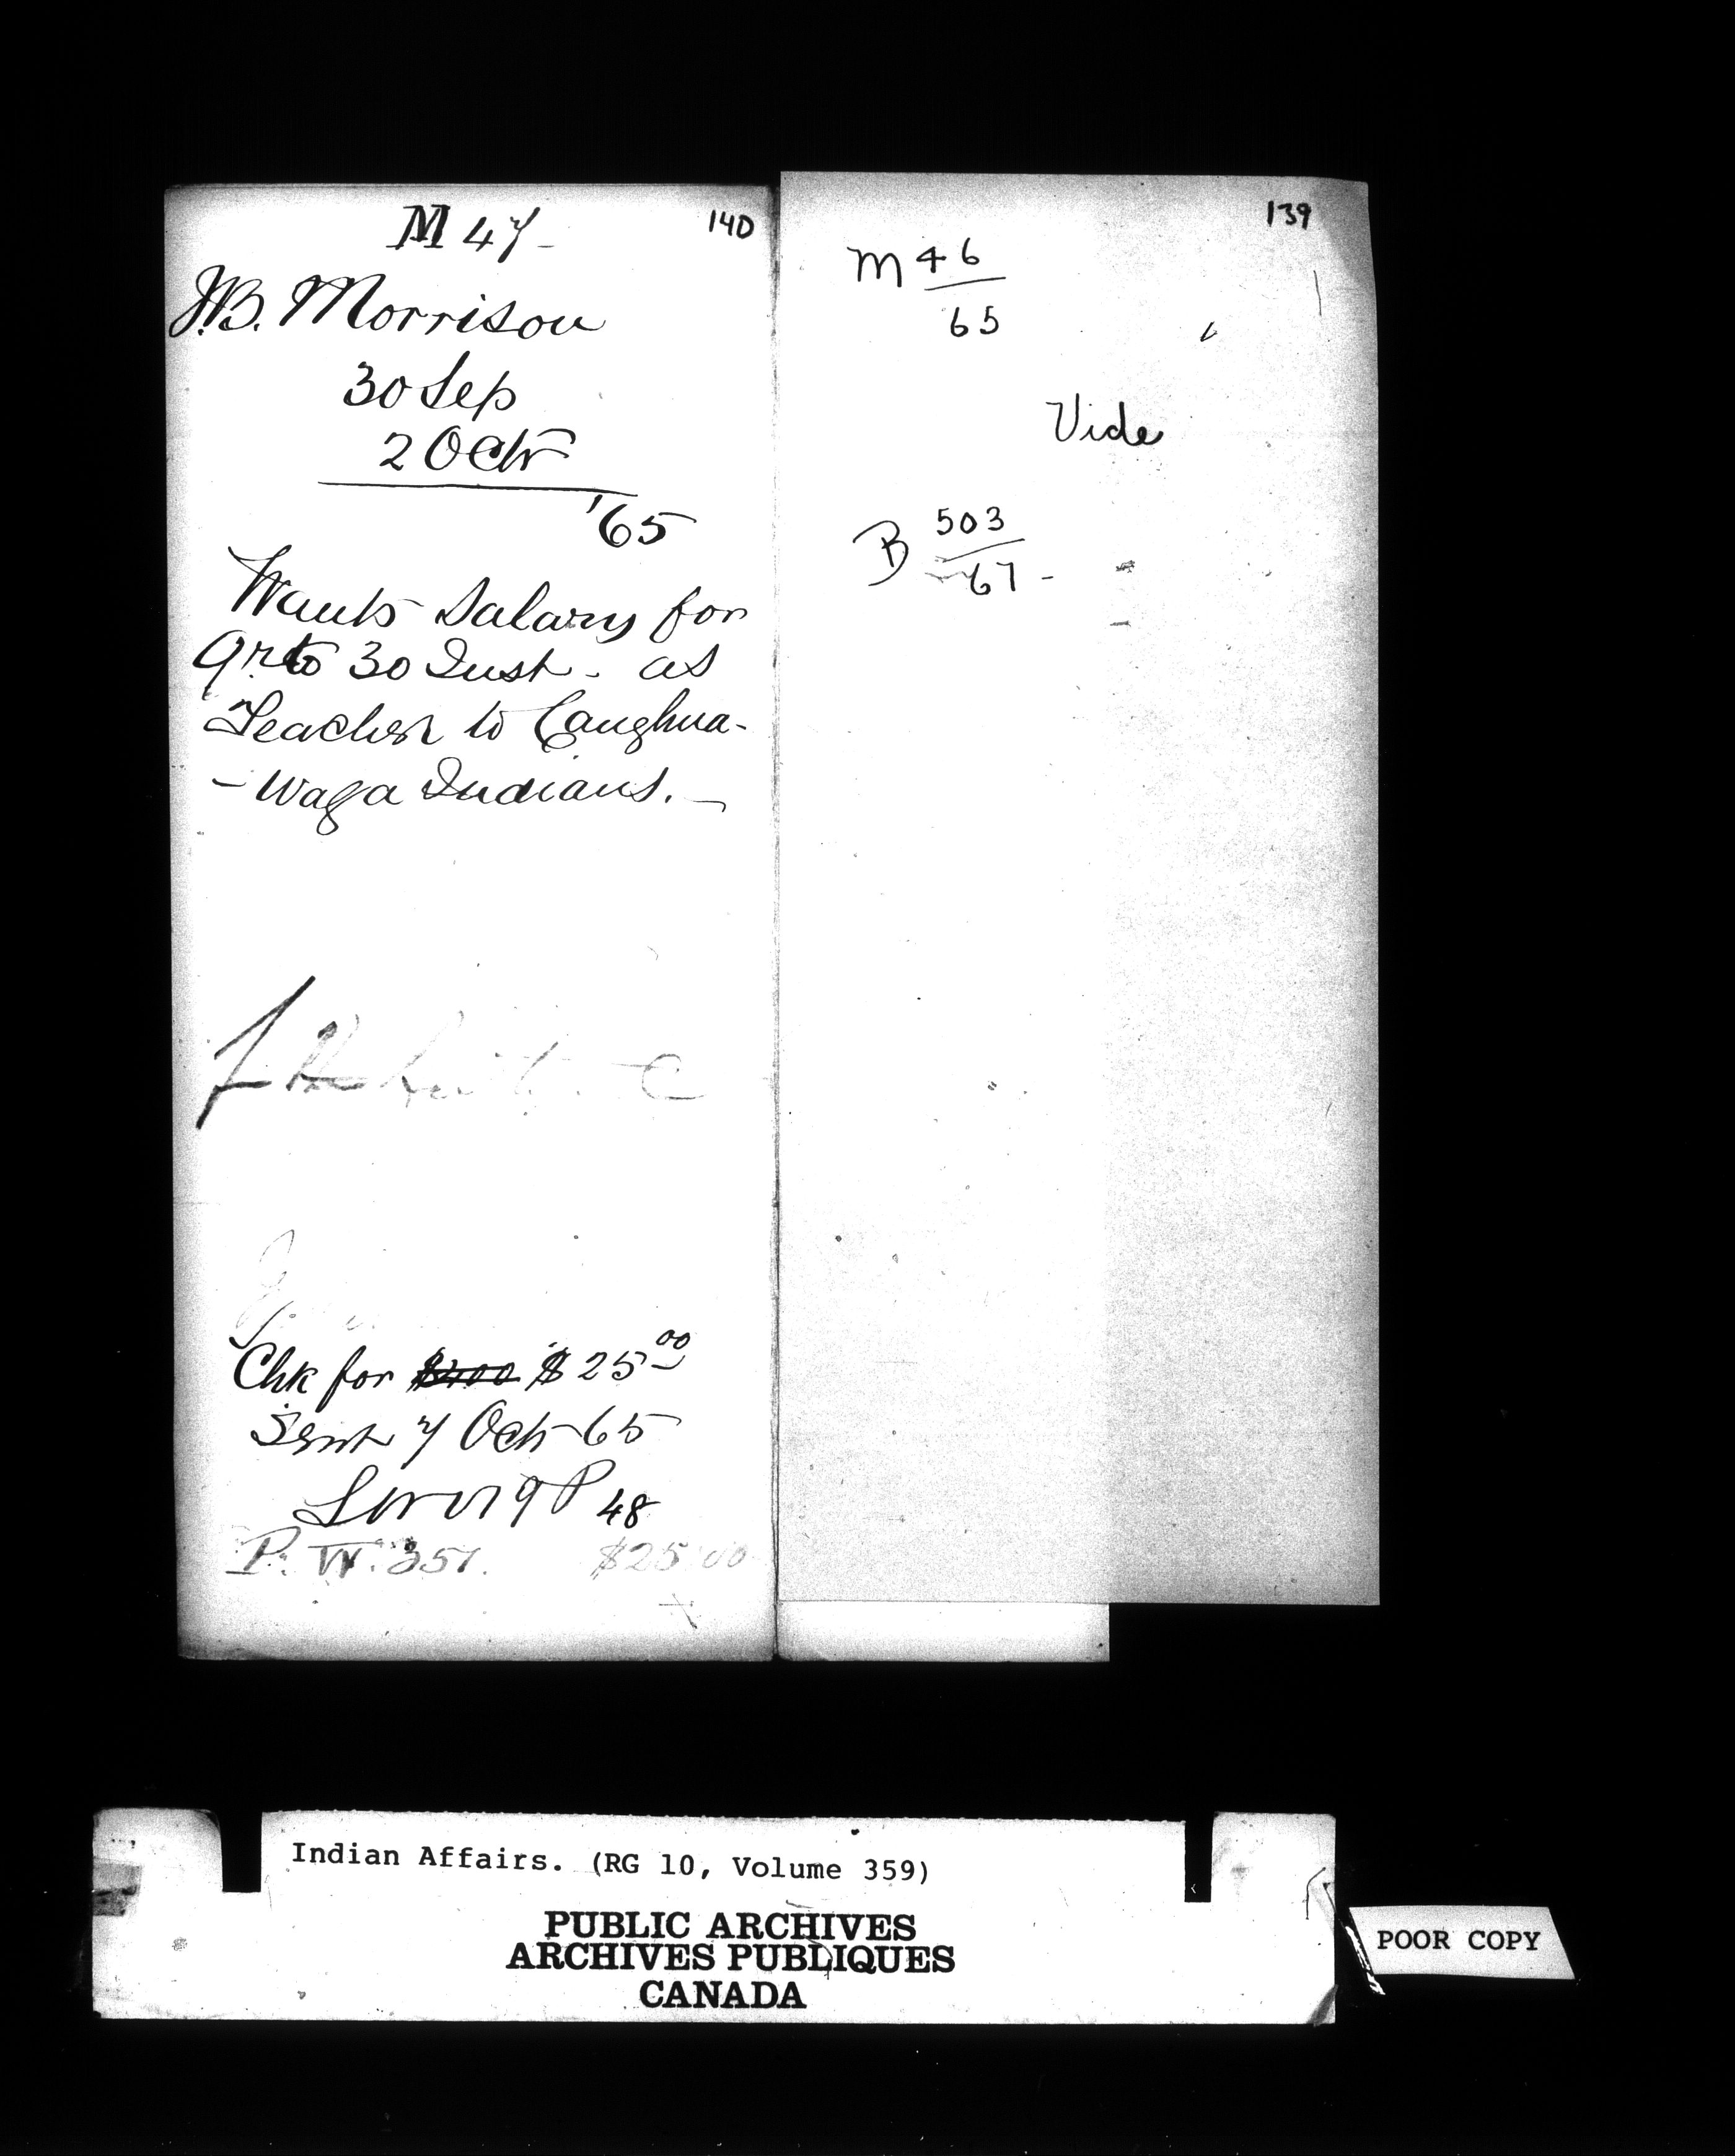 M 47
140
J.B. Morrison
30 Sep
2 Octr
'65
Wants Salary for
Qr to 30 Inst. as
Teacher to Caughna-
- Waga Indians. -
Chk for $25 00
Sent 7 Oct 65
P 48
P. W. 351. $25.00
139
M 46
65
Vide
B 503
67 -
Indian Affairs. (RG 10, Volume 359)
PUBLIC ARCHIVES
ARCHIVES PUBLIQUES
CANADA
POOR COPY